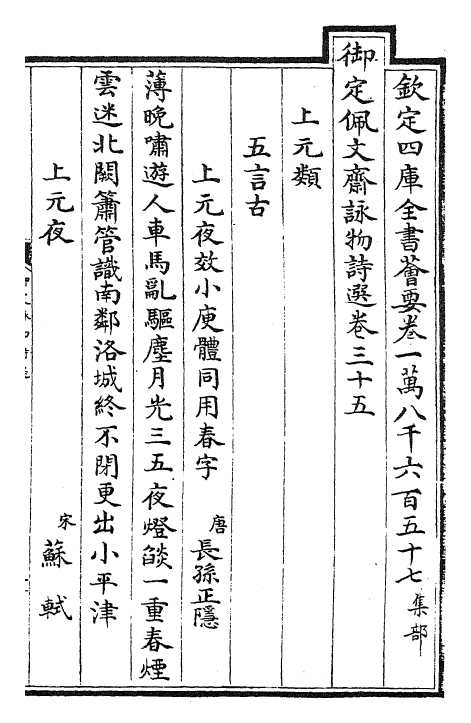 欽定四庫全書薈要卷一萬八千六百五十七 集部
御定佩文齋詠物詩選卷三十五
上元類
五言古
上元夜效小庾體同用春字 唐 長孫正隱
薄晚嘯遊人車馬亂驅塵月光三五夜燈燄一重春煙
雲迷北闕簫管識南鄰洛城終不閉更出小平津
上元夜 宋 蘇軾